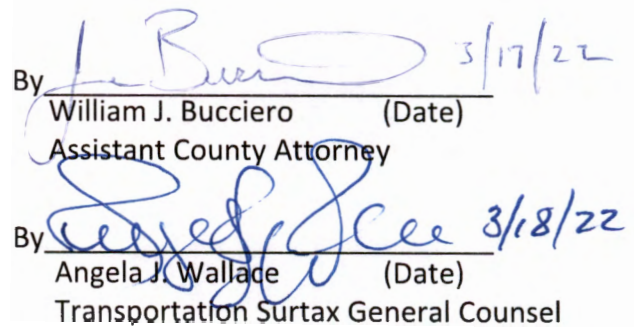 By 3/17/22
William J. Bucciero (Date)
Assistant County Attorney
By 3/18/22
Angela J. Wallace (Date)
Transportation Surtax General Counsel